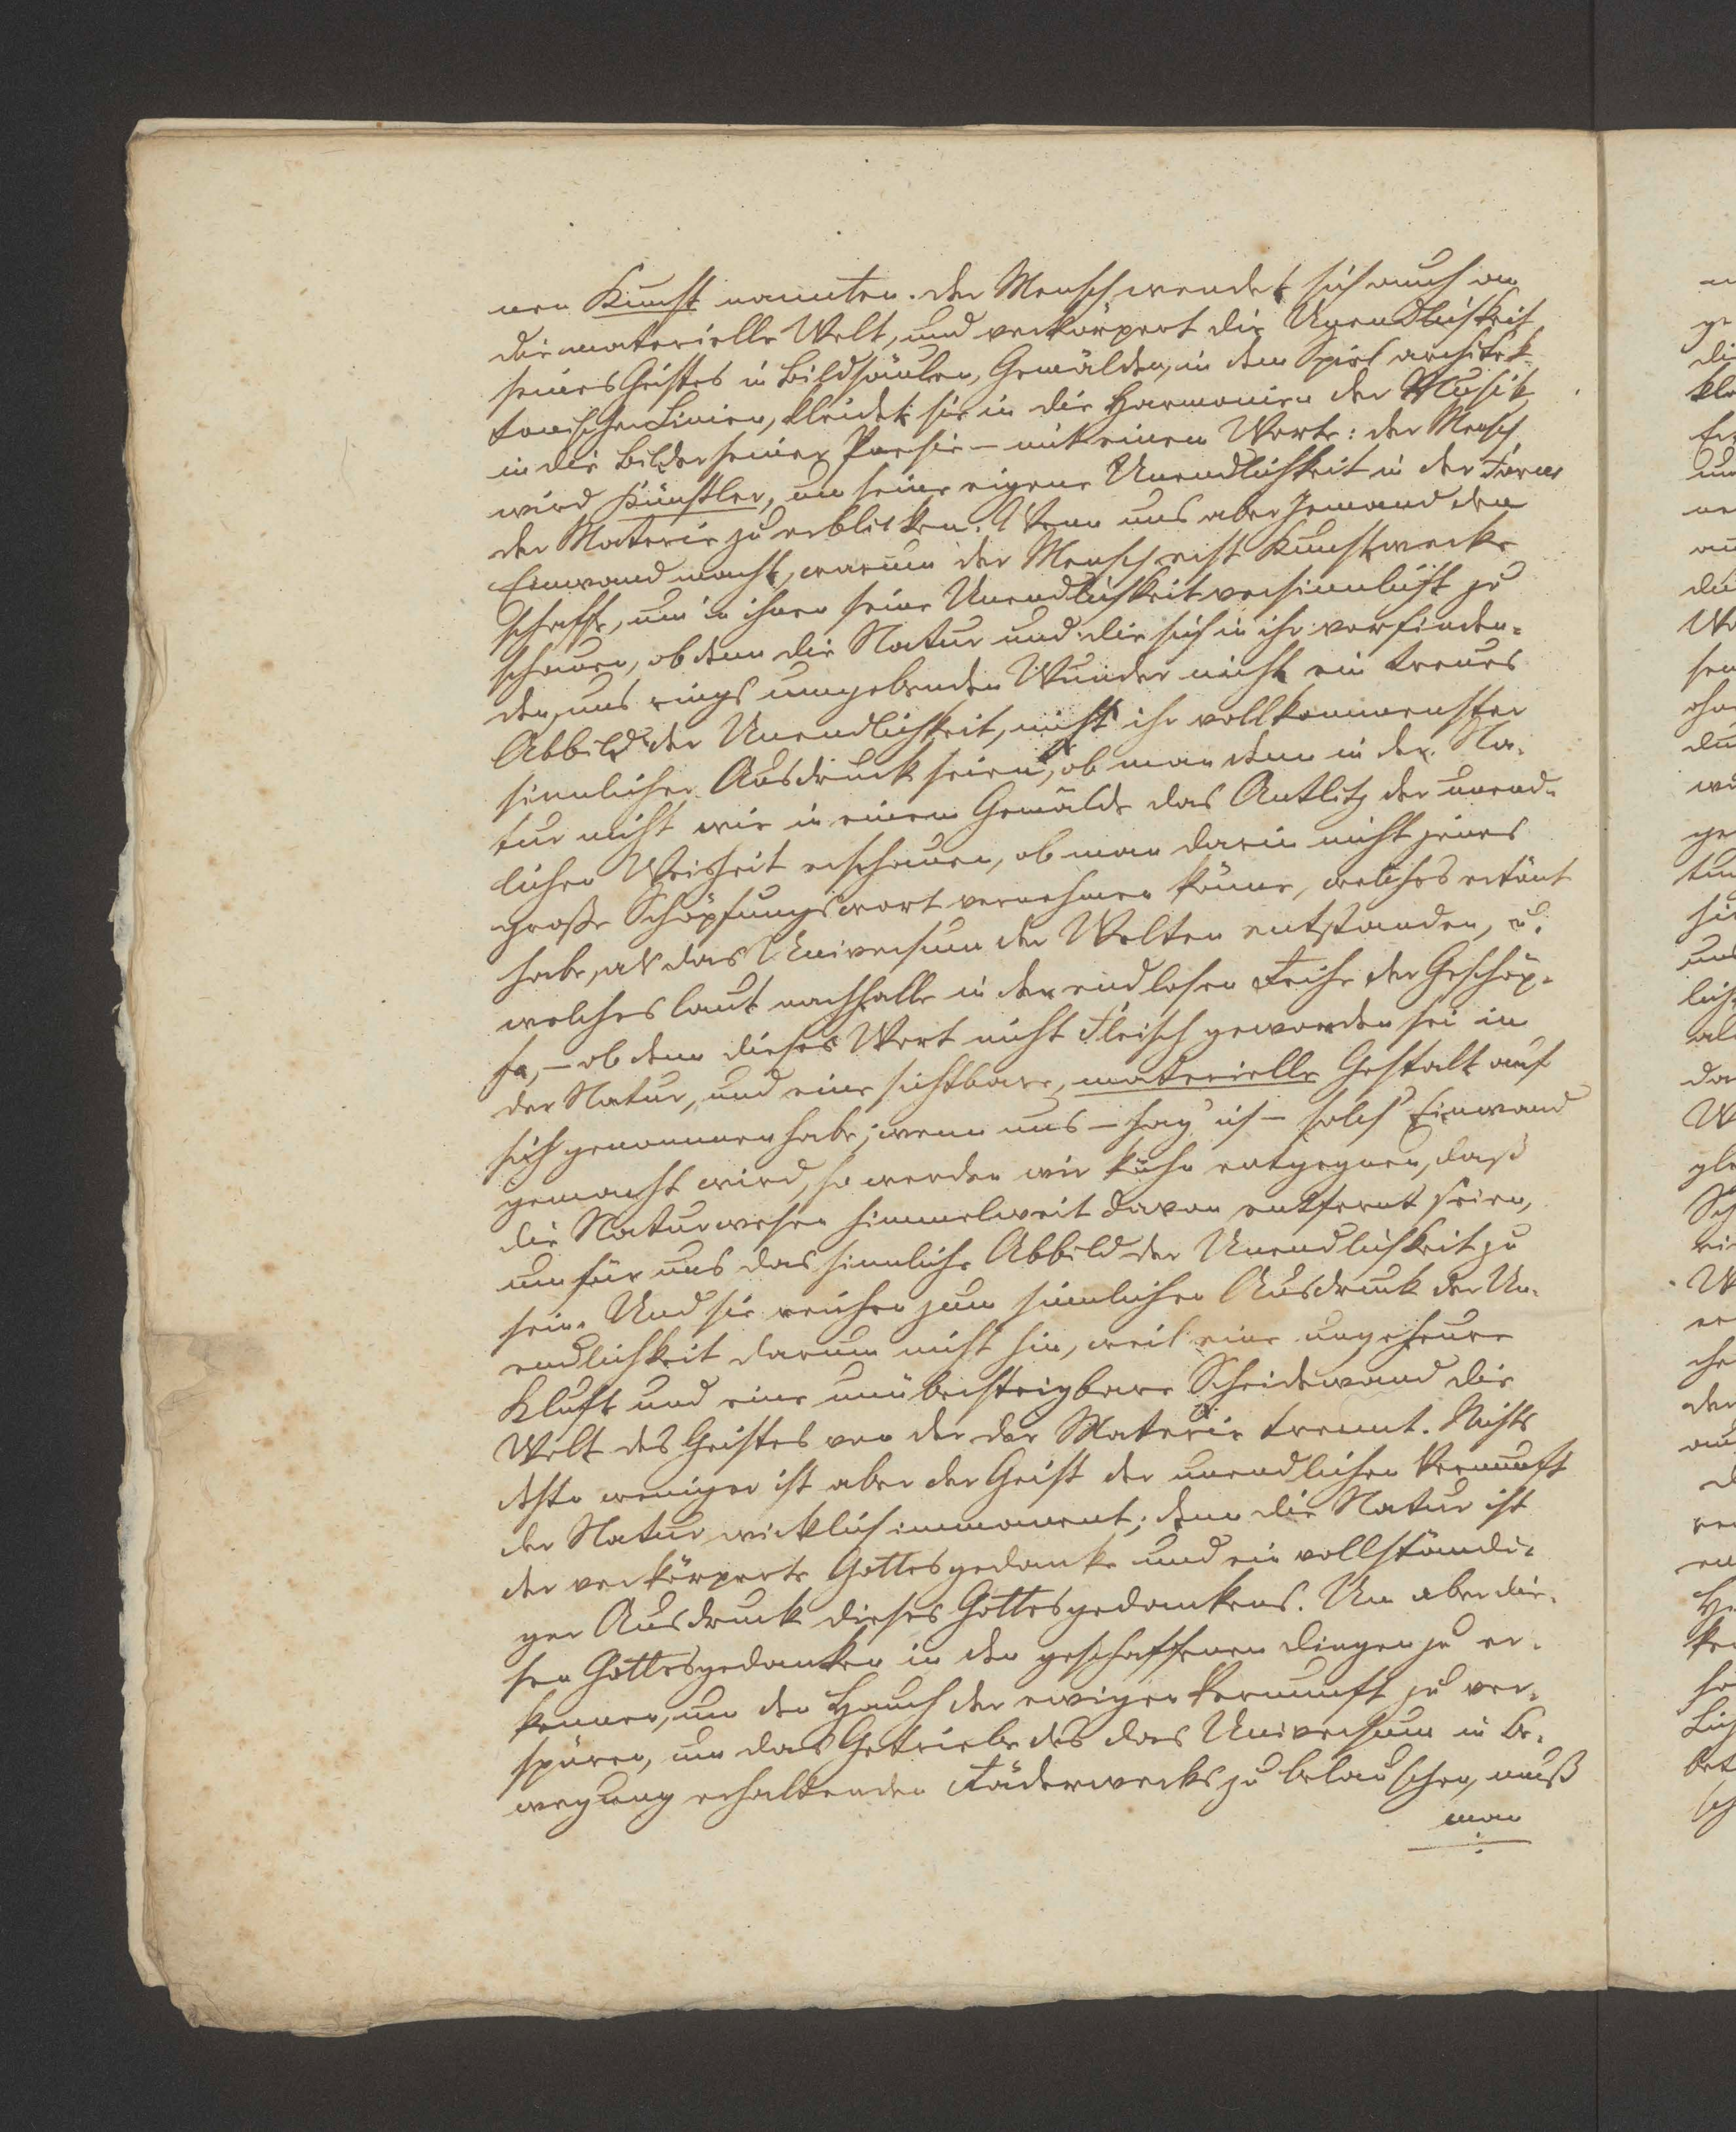 nen Kunst nannten. Der Mensch wendet sich auch an
die materielle Welt, und verkörpert die Unendlichkeit
seines Geistes in Bildsäulen, Gemälden, in dem Spiel architek-
tonischer Linien, kleidet sie in die Harmonien der Musik,
in die Bilder seiner Poesie – mit einem Worte: der Mensch
wird Künstler, um seine eigene Unendlichkeit in der Form
der Materie zu erblicken. Wenn uns aber Jemand den
Einwand macht, warum der Mensch erst Kunstwerke
schaffe, um in ihnen seine Unendlichkeit versinnlicht zu
schauen, ob denn die Natur und die sich in ihr vorfinden-
den, uns rings umgebenden Wunder nicht ein treues
Abbild der Unendlichkeit, nicht ihr vollkommenster
sinnlicher Ausdruck seien, ob man denn in der Na-
tur nicht wie in einem Gemälde das Antlitz der unend-
lichen Weisheit erschauen, ob man darin nicht jenes
große Schöpfungswort vernehmen könne, welches ertönt
habe, als das Universum der Welten entstanden, u.
welches laut nachhalle in der endlosen Reihe der Geschöp-
fe, – ob denn dieses Wort nicht Fleisch geworden sei in
der Natur, und eine sichtbare, materielle Gestalt auf
sich genommen habe; wenn uns – sag' ich – solch' Einwand
gemacht wird, so werden wir kühn entgegnen, daß
die Naturwesen himmelweit davon entfernt seien,
um für uns das sinnliche Abbild der Unendlichkeit zu
sein. Und sie reichen zum sinnlichen Ausdruck der Un-
endlichkeit darum nicht hin, weil eine ungeheure
Kluft und eine unübersteigbare Scheidewand die
Welt des Geistes von der der Materie trennt. Nichts
desto weniger ist aber der Geist der unendlichen Vernunft
der Natur wirklich immanent; denn die Natur ist
der verkörperte Gottesgedanke und ein vollständi-
ger Ausdruck dieses Gottesgedankens. Um aber die-
sen Gottesgedanken in den geschaffenen Dingen zu er-
kennen, um den Hauch der ewigen Vernunft zu ver-
spüren, um das Getriebe des das Universum in Be-
wegung erhaltenden Räderwerks zu belauschen, muß
man